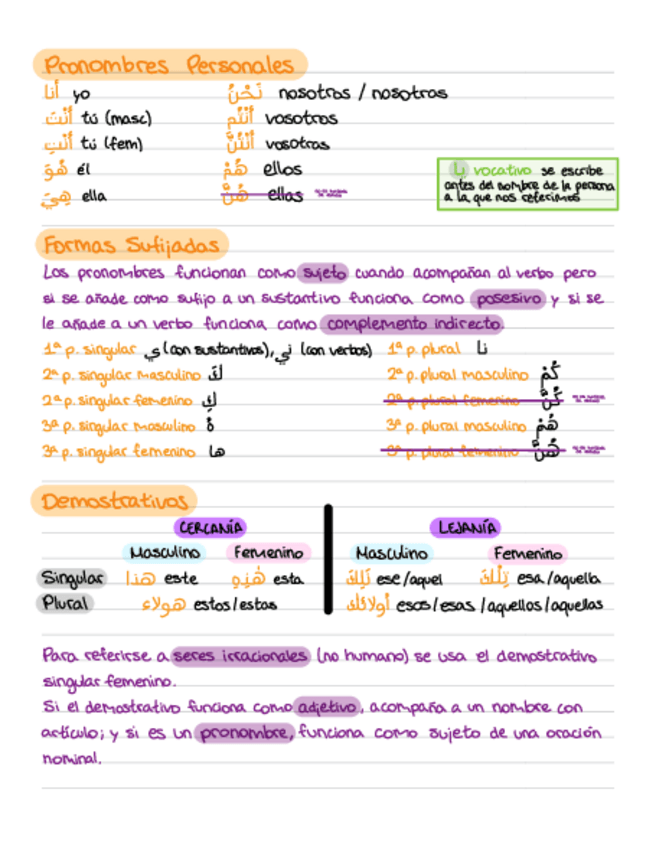 Pronombres Personales
أنا yo نَحْنُ nosotros / nosotras
أَنْتَ tú (masc) أَنْتُم vosotros
أَنْتِ tú (fem) أَنْتُنَّ vosotras
هُوَ él هُمْ ellos
هِيَ ella هُنَّ ellas
يا vocativo se escribe
antes del nombre de la persona
a la que nos referimos
Formas Sufijadas
Los pronombres funcionan como sujeto cuando acompañan al verbo pero
si se añade como sufijo a un sustantivo funciona como posesivo y si se
le añade a un verbo funciona como complemento indirecto.
1ª p. singular ي (con sustantivos), ني (con verbos) 1ª p. plural نا
2ª p. singular masculino كَ 2ª p. plural masculino كُمْ
2ª p. singular femenino كِ 2ª p. plural femenino كُنَّ
3ª p. singular masculino هُ 3ª p. plural masculino هُمْ
3ª p. singular femenino ها 3ª p. plural femenino هُنَّ
Demostrativos
CERCANÍA LEJANÍA
Masculino Femenino Masculino Femenino
Singular هذا este هٰذِهِ esta ذٰلِكَ ese/aquel تِلْكَ esa/aquella
Plural هولاء estos/estas أولائك esos/esas/aquellos/aquellas
Para referirse a seres irracionales (no humano) se usa el demostrativo
singular femenino.
Si el demostrativo funciona como adjetivo, acompaña a un nombre con
artículo; y si es un pronombre, funciona como sujeto de una oración
nominal.